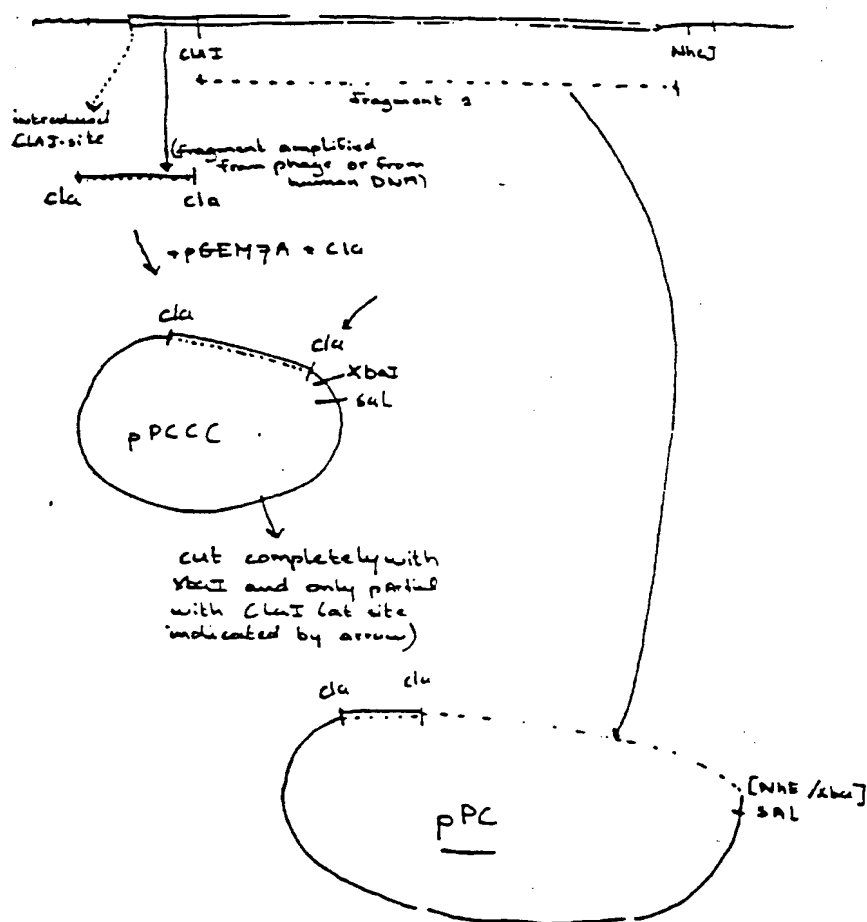 ClaI
NheI
fragment 1
introduced
ClaI-site
(fragment amplified
from phage or from
human DNA)
cla
cla
+pGEM7A + Cla
cla
cla
XbaI
saL
pPCCC
cut completely with
XbaI and only partial
with ClaI (at site
indicated by arrow)
cla
cla
[NhE /xba]
SAL
pPC